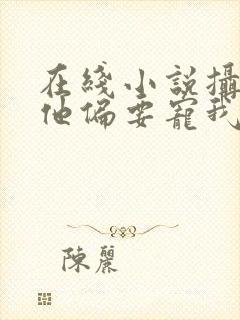 在綫小說攝
他偏要寵我
陳麗